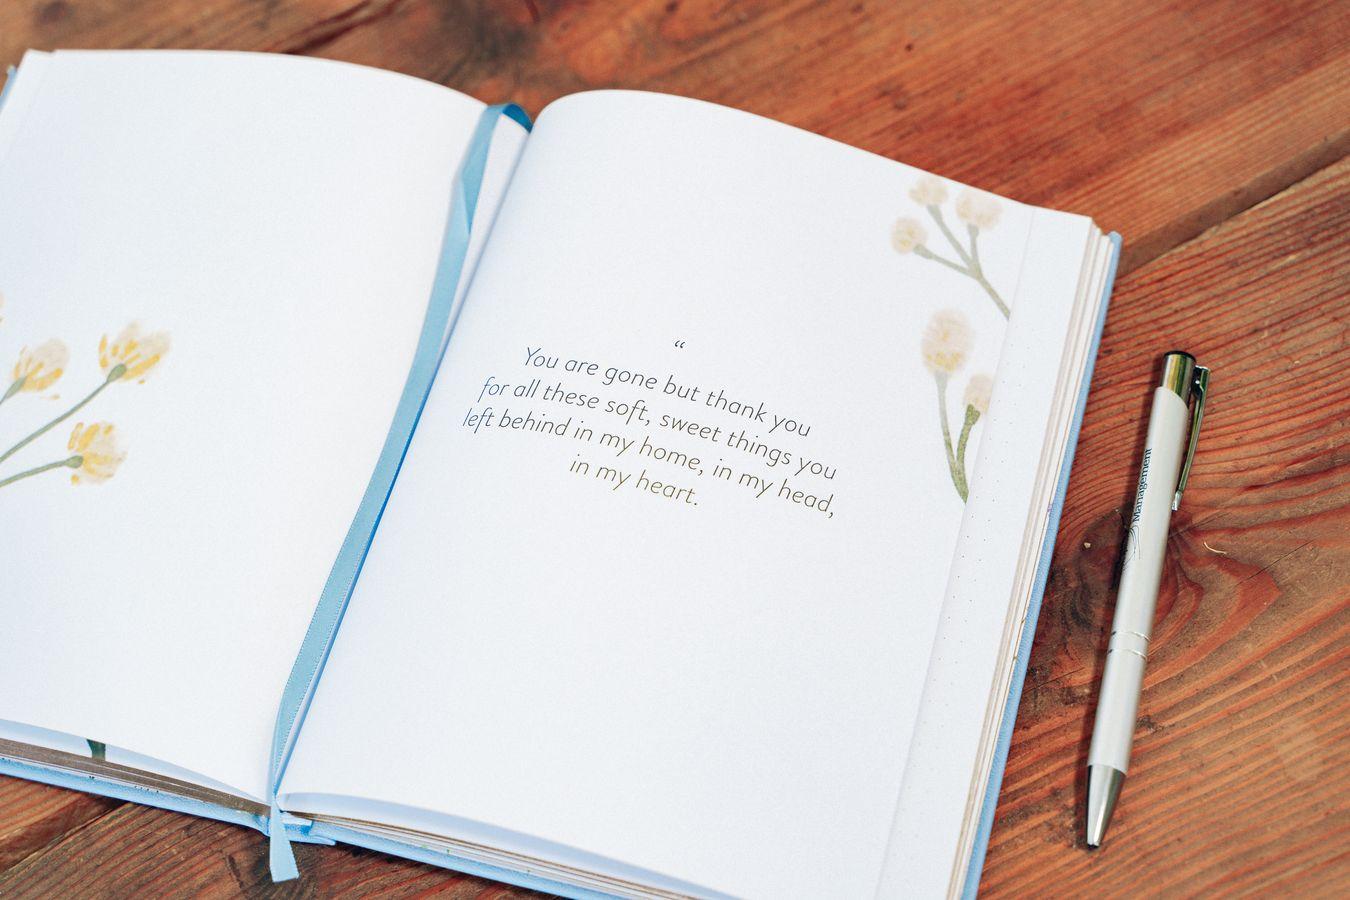 “
You are gone but thank you
for all these soft, sweet things you
left behind in my home, in my head,
in my heart.
Management